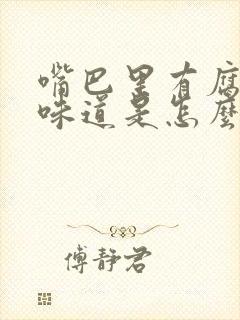 嘴巴里有腐
味道是怎麼
傅静君